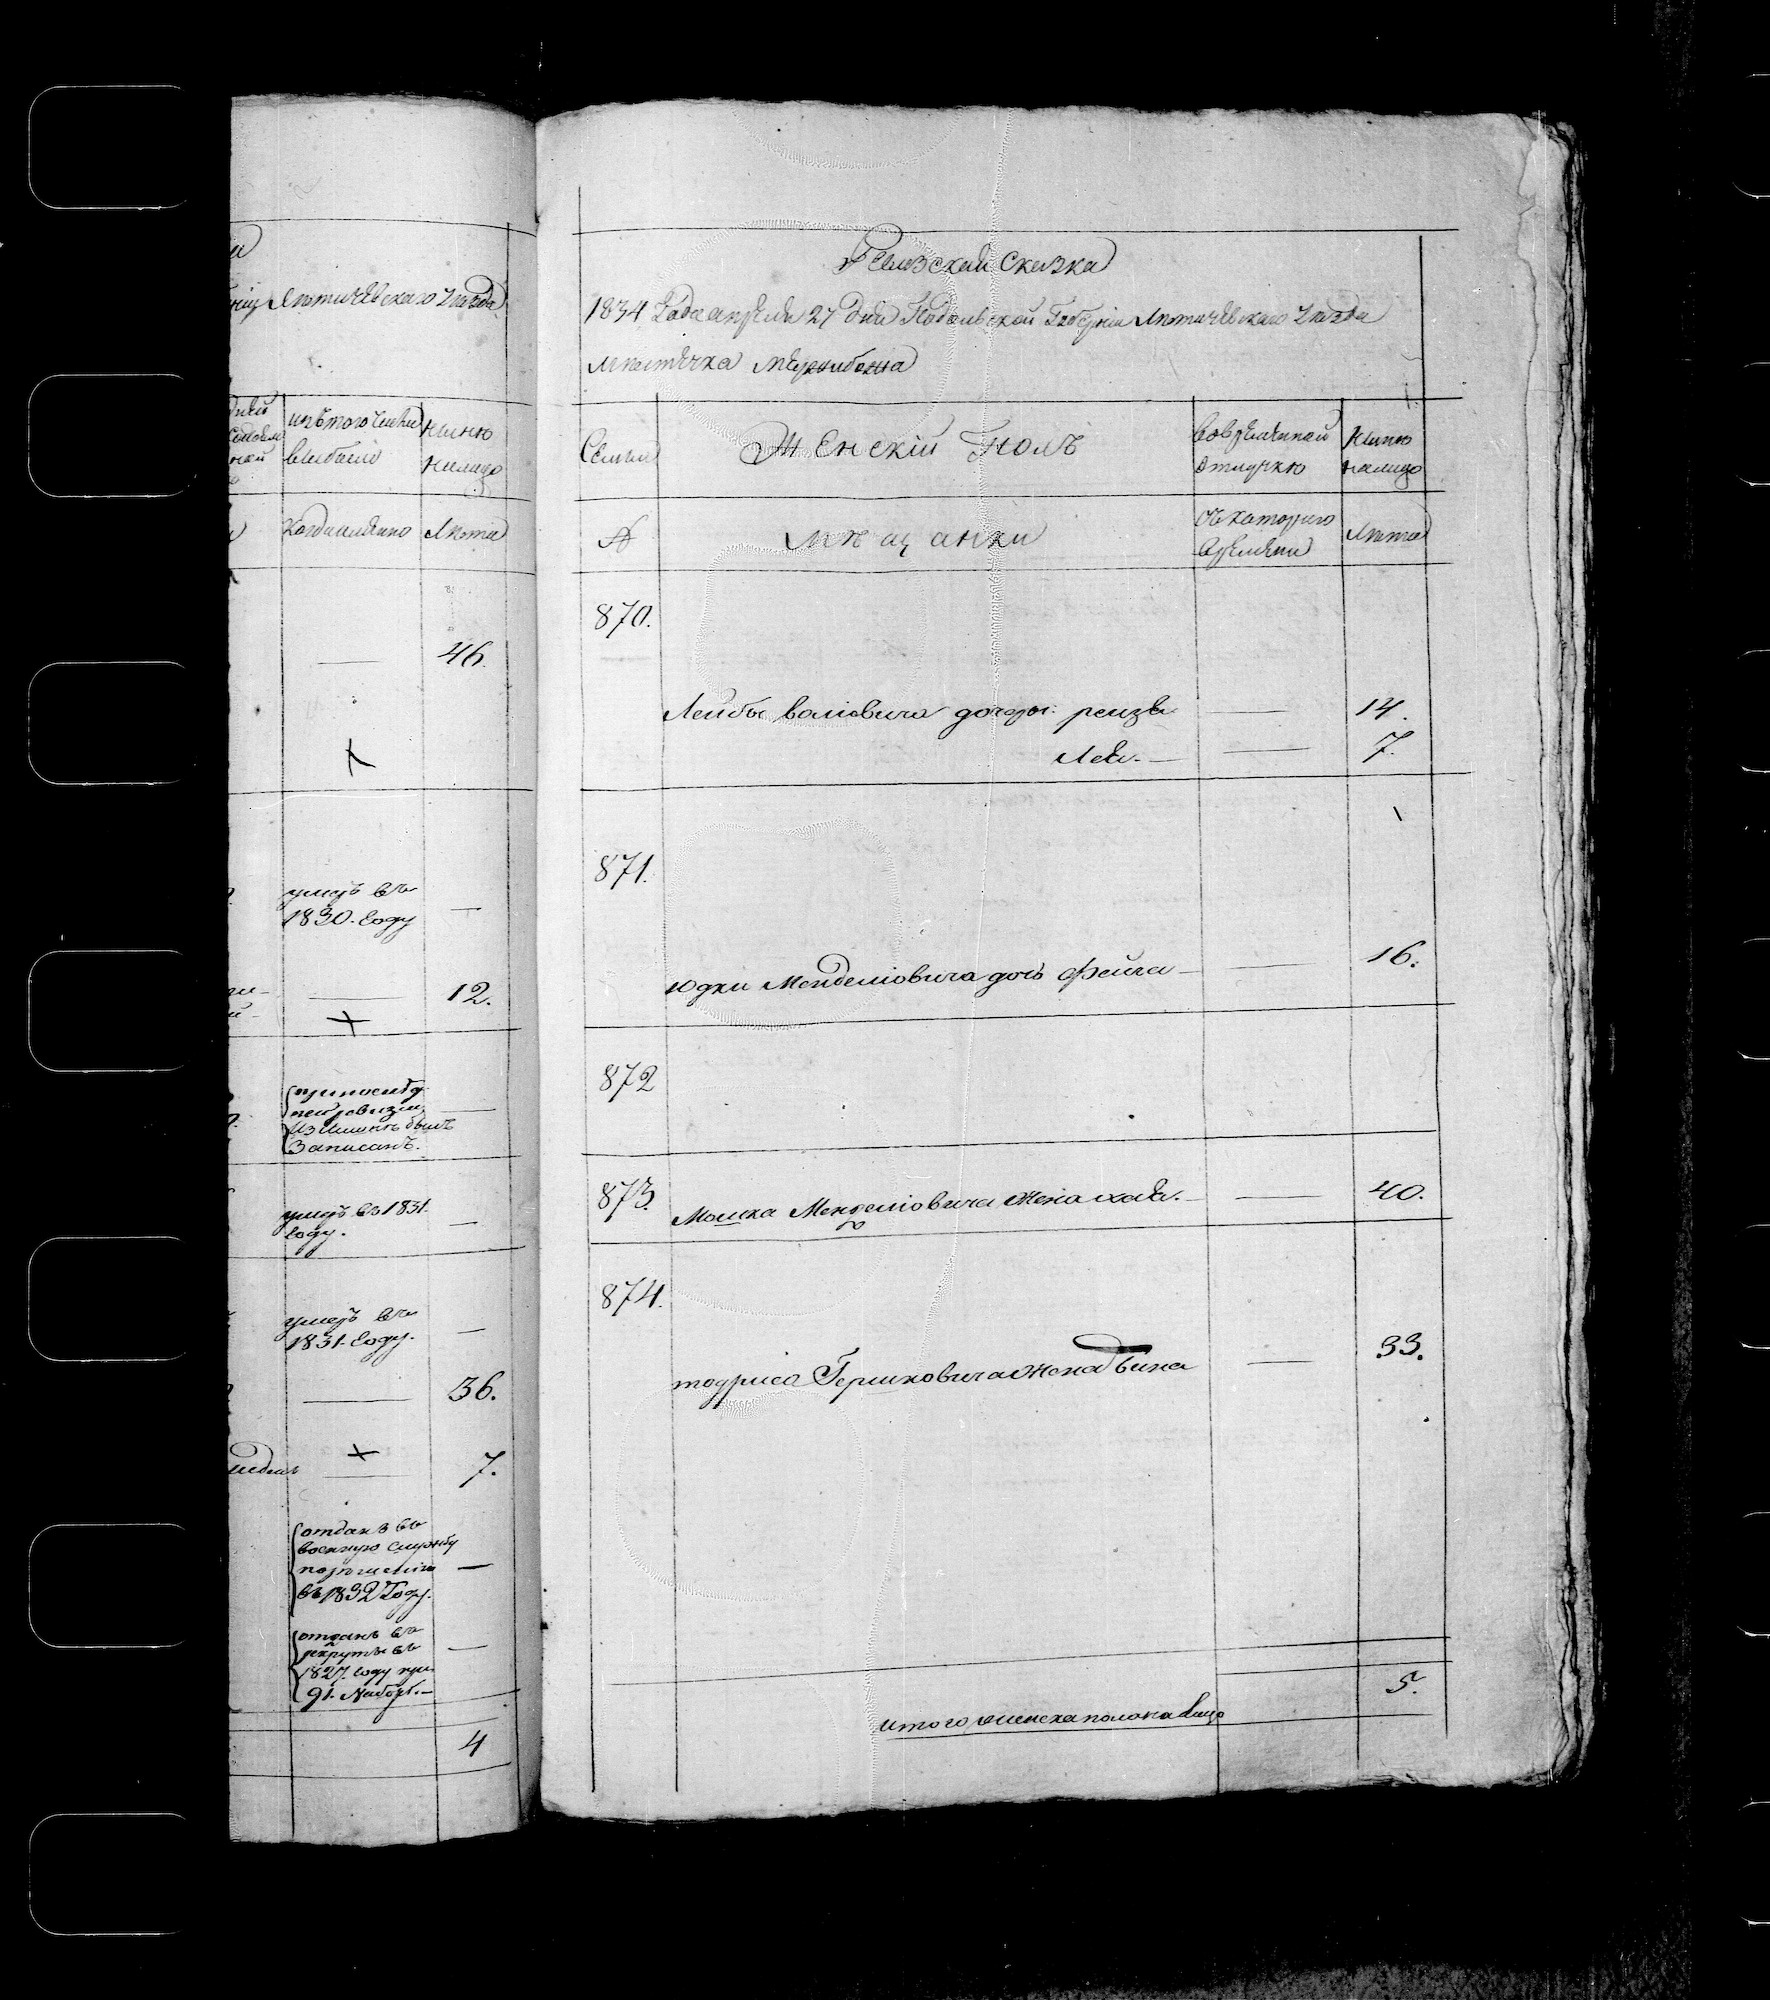 Уѣзда
Лѣтичевскаго
изъ того числа
выбыло
ныне
налицо
Когда именно
Лѣта
46.
умеръ въ
1830. Году
12.
запис анъ.
умеръ въ 1831.
Году.
умеръ въ
1831. Году.
36.
7.
отданъ въ
военную службу
въ 1832 Году.
отданъ въ
рекруты въ
1827. Году при
91. Наборѣ.
4
Ревизская Сказка
1834 Года апреля 27 дня Подольской Губерніи Лѣтичевскаго Уѣзда
Мѣстечка Межибожа
Семьи
Женскій Полъ
Во временной
отлучке
Ныне
налицо
№
мѣщанки
Съ котораго
времени
Лѣта
870.
Лейбы Волковича дочеры: рейза — 14.
Лея. — 7.
871.
Юдки Менделіовича дочь Фейга — 16.
872
873. Мошка Менделіовича Жена хая. — 40.
874.
тодриса Гершковича Жена Бина — 33.
итого женска пола налицо 5.